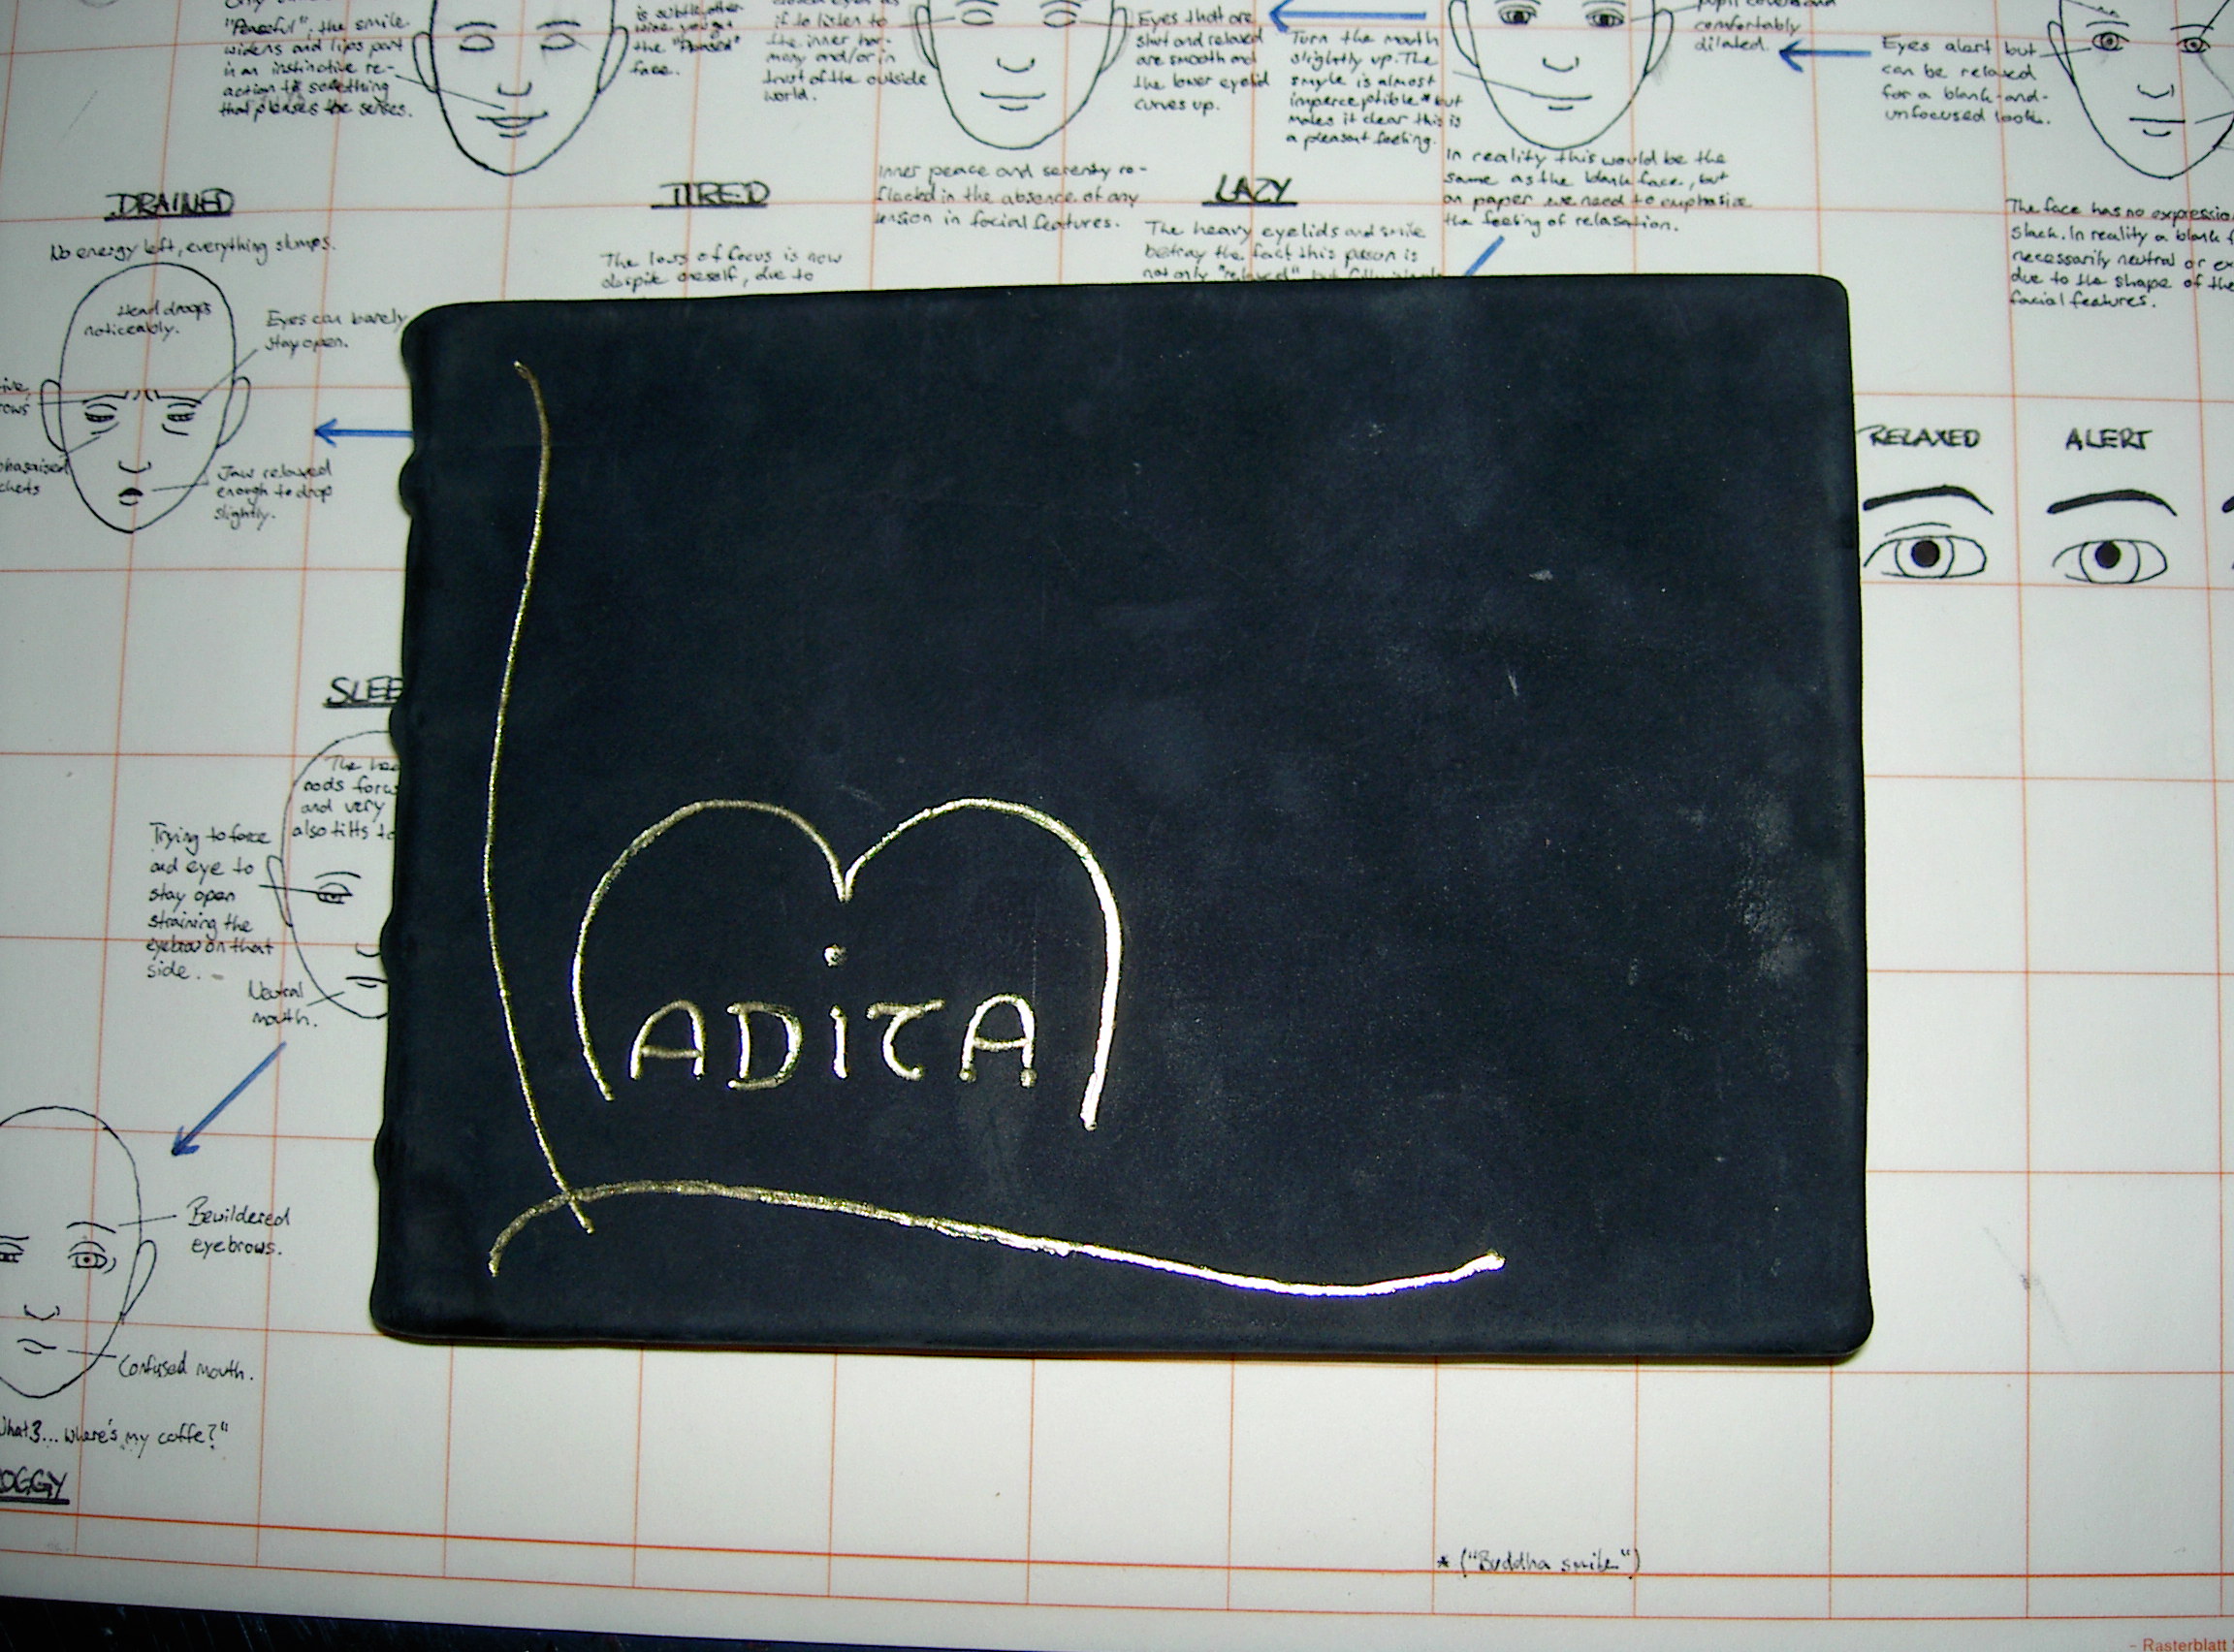 "Peaceful", the smile
widens and lips part
in an instinctive re-
action to something
that pleases the senses.
is subtle other-
wise you get
the "Pleased"
face.
if to listen to
the inner har-
mony and/or in
trust of the outside
world.
Eyes that are
shut and relaxed
are smooth and
the lower eyelid
curves up.
Turn the mouth
slightly up. The
smyle is almost
imperceptible * but
makes it clear this is
a pleasant feeling.
comfortably
dilated.
Eyes alert but
can be relaxed
for a blank-and-
unfocused look.
Inner peace and serenity re-
flected in the absence of any
tension in facial features.
In reality this would be the
same as the blank face, but
on paper we need to emphasize
the feeling of relaxation.
The face has no expression
slack. In reality a blank f
necessarily neutral or ex
due to the shape of the
facial features.
DRAINED
No energy left, everything slumps.
Head drops
noticeably.
Eyes can barely
stay open.
Jaw relaxed
enough to drop
slightly.
TIRED
The loss of focus is now
despite oneself, due to
LAZY
The heavy eyelids and smile
betray the fact this person is
not only "relaxed" but fully
RELAXED
ALERT
SLEE
The hea
nods forw
and very
also tilts to
Trying to force
and eye to
stay open
straining the
eyebrow on that
side.
Neutral
mouth.
MADITA
Bewildered
eyebrows.
Confused mouth.
What?... Where's my coffe?"
OGGY
* ("Buddha smile")
- Rasterblatt